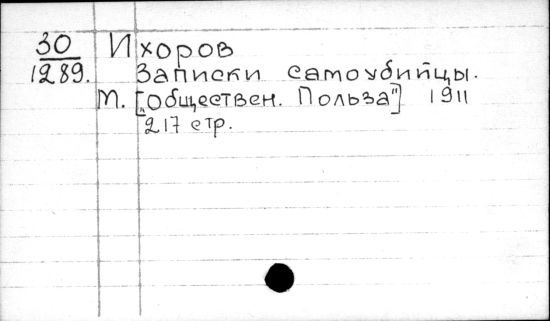 30 Ихоров
1289. Записки самоубийцы.
М. [„Обществен. Польза"] 1911
217 стр.